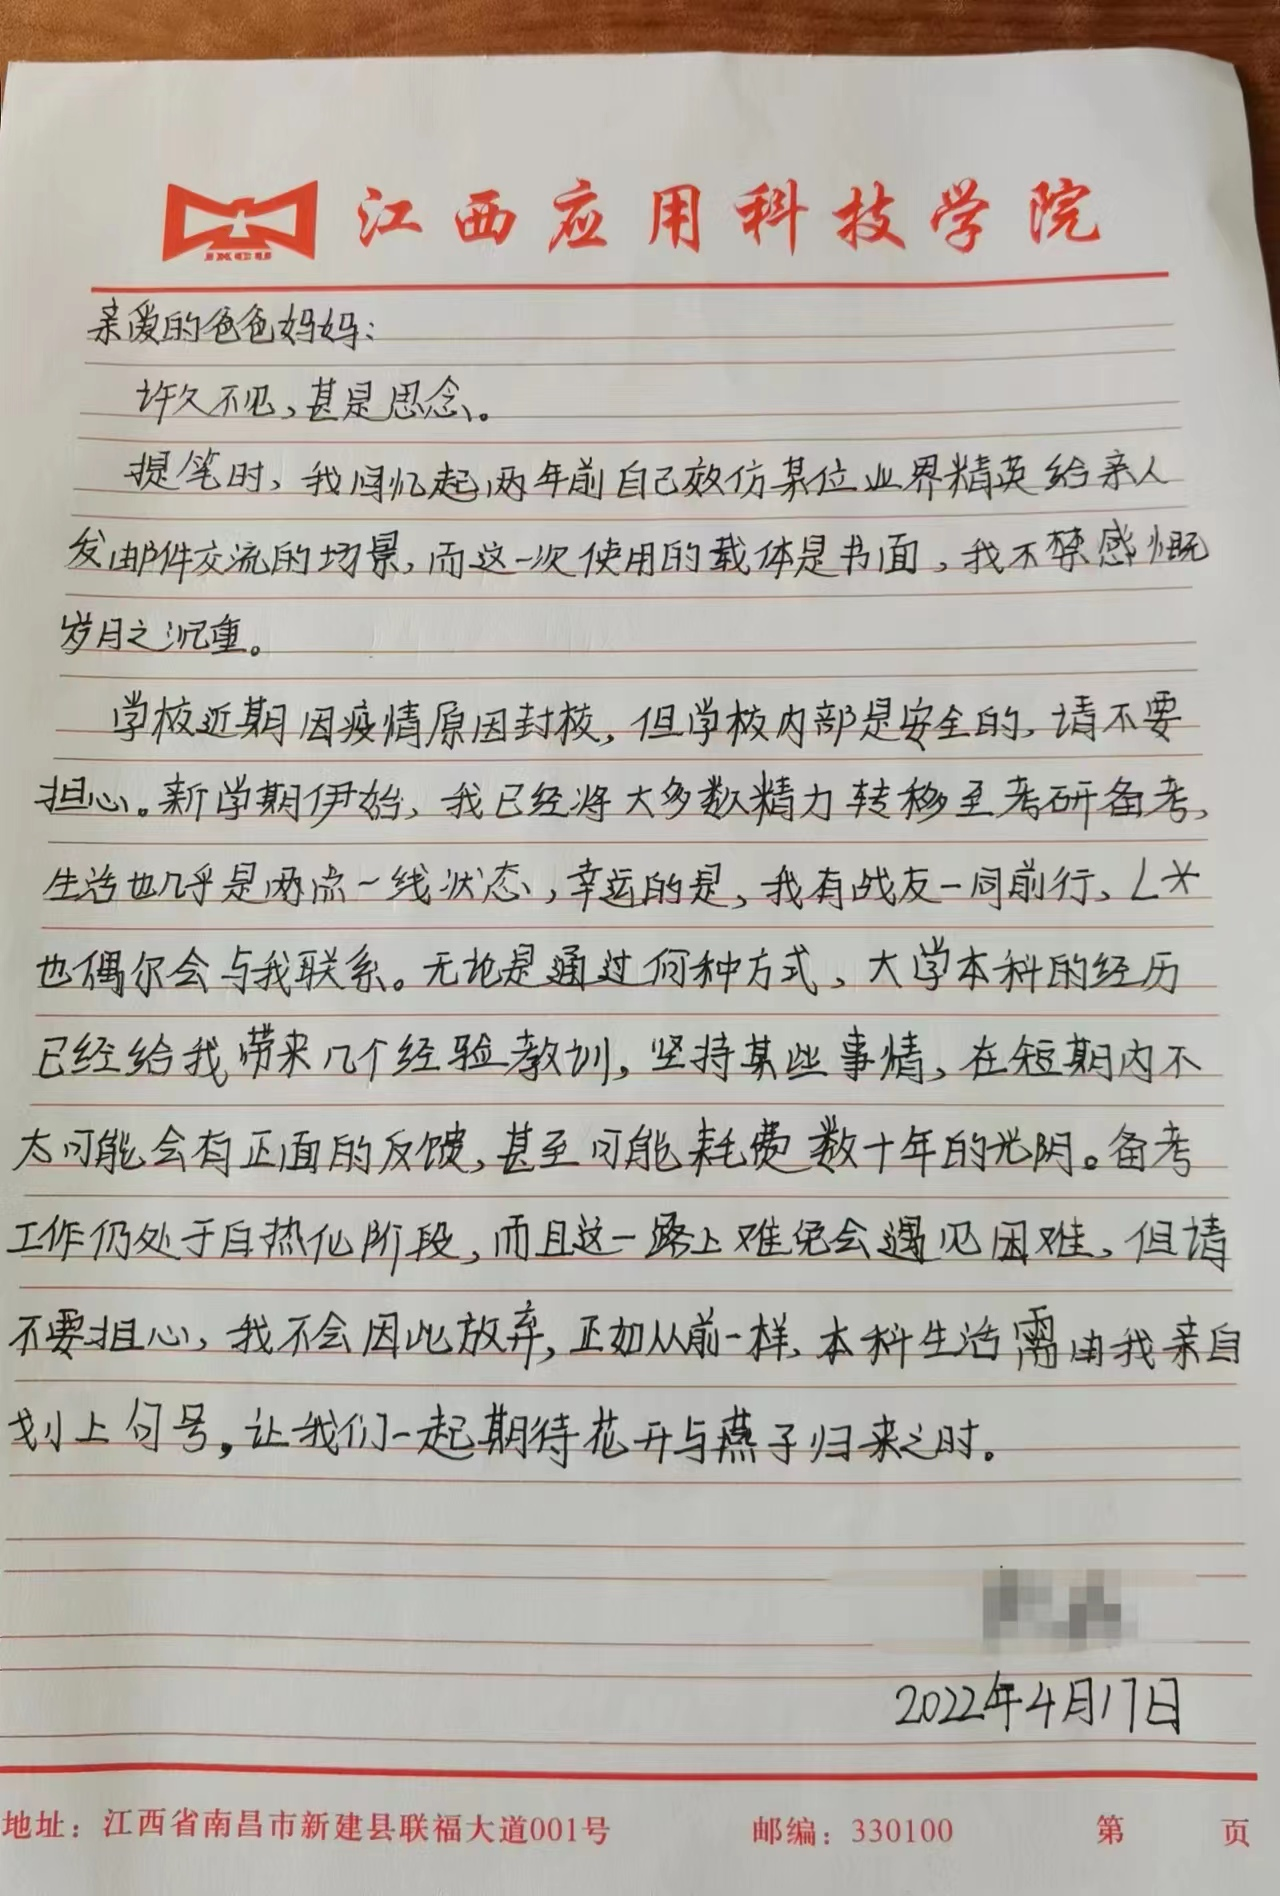 江西应用科技学院
亲爱的爸爸妈妈：
许久不见，甚是思念。
提笔时，我回忆起两年前自己效仿某位业界精英给亲人
发邮件交流的场景，而这一次使用的载体是书面，我不禁感慨
岁月之沉重。
学校近期因疫情原因封校，但学校内部是安全的，请不要
担心。新学期伊始，我已经将大多数精力转移至考研备考，
生活也几乎是两点一线状态，幸运的是，我有战友一同前行，L*
也偶尔会与我联系。无论是通过何种方式，大学本科的经历
已经给我带来几个经验教训，坚持某些事情，在短期内不
太可能会有正面的反馈，甚至可能耗费数十年的光阴。备考
工作仍处于白热化阶段，而且这一路上难免会遇见困难，但请
不要担心，我不会因此放弃，正如从前一样，本科生活需由我亲自
划上句号，让我们一起期待花开与燕子归来之时。
2022年4月17日
地址：江西省南昌市新建县联福大道001号 邮编：330100 第 页